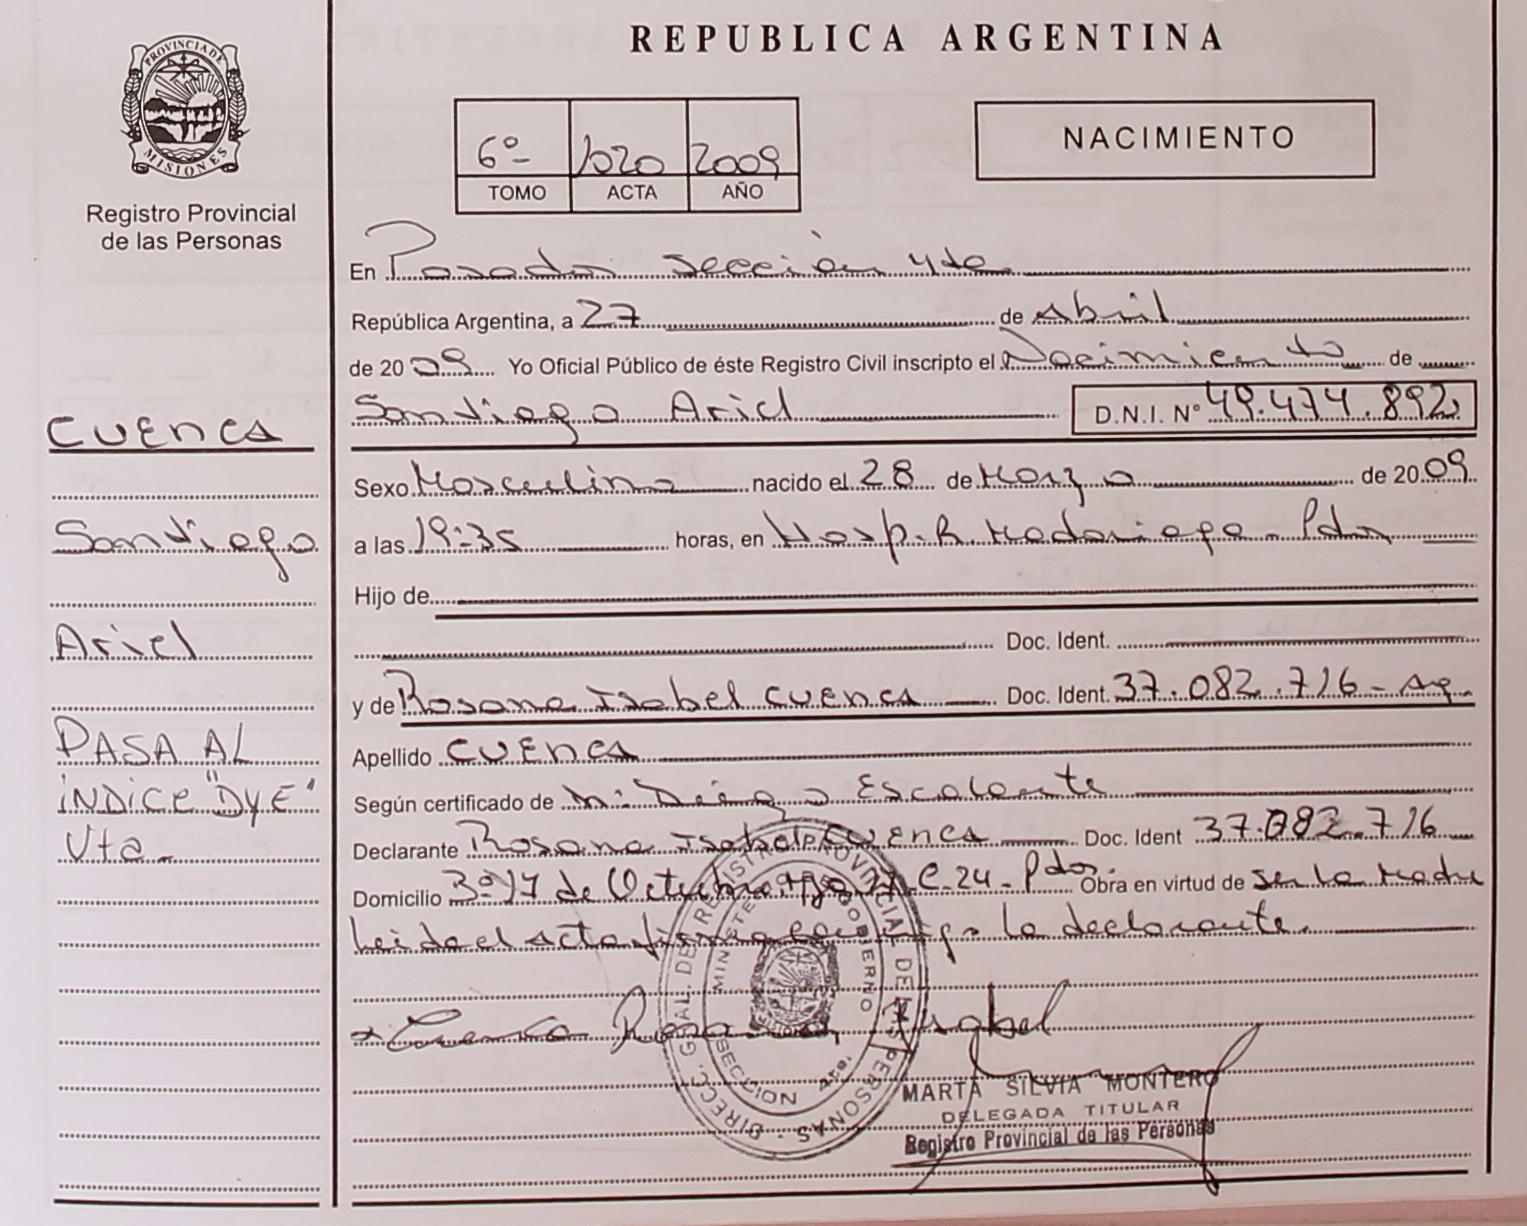 PROVINCIA DE
MISIONES
Registro Provincial
de las Personas
CUENCA
Santiago
Ariel
PASA AL
INDICE "DYE"
Vta.
REPUBLICA ARGENTINA
6º 1020 2009
TOMO ACTA AÑO
NACIMIENTO
En Posadas sección 4ta
República Argentina, a 27 de Abril
de 2009 Yo Oficial Público de éste Registro Civil inscripto el Nacimiento de
Santiago Ariel D.N.I. Nº 49.474.892
Sexo Masculino nacido el 28 de Marzo de 2009
a las 19:35 horas, en Hosp. R. Madariaga - Pdas
Hijo de
Doc. Ident.
y de Rosana Isabel CUENCA Doc. Ident. 37.082.716 - Ag.
Apellido CUENCA
Según certificado de Diego Escalante
Declarante Rosana Isabel CUENCA Doc. Ident 37.082.716
Domicilio 17 de Octubre C. 24 - Pdas. Obra en virtud de ser la madre
Leida el acta firma conmigo la declarante.
Cuenca Rosana Isabel
DIRECC. GRAL. DEL REGISTRO PROVINCIAL DE LAS PERSONAS
MINISTERIO DE GOBIERNO
SECCION 4ta.
MARTA SILVIA MONTERO
DELEGADA TITULAR
Registro Provincial de las Personas